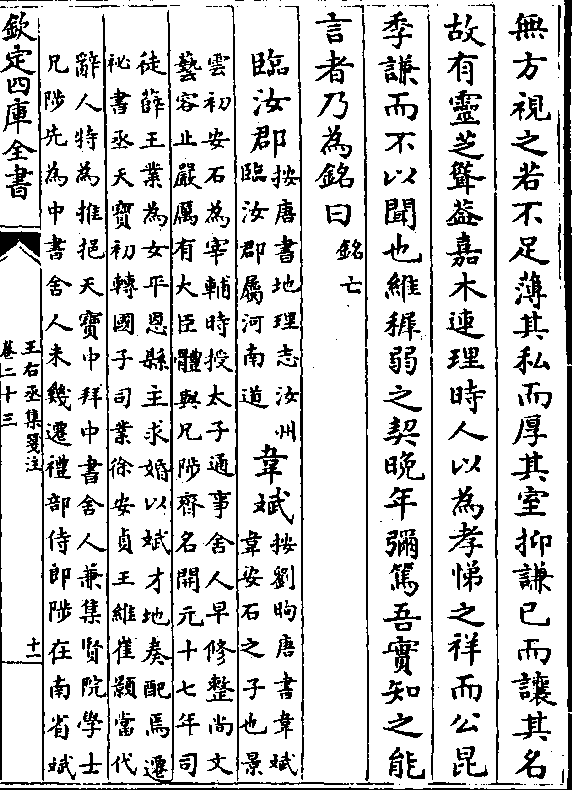 無方視之若不足薄其私而厚其室抑謙已而讓其名
故有靈芝聳蓋嘉木連理時人以為孝悌之祥而公昆
季謙而不以聞也維穉弱之契晚年彌篤吾實知之能
言者乃為銘曰銘亡
臨汝郡按唐書地理志汝州臨汝郡屬河南道韋斌按劉昫唐書韋斌韋安石之子也景
雲初安石為宰輔時授太子通事舍人早修整尚文
藝容止嚴厲有大臣體與兄陟齊名開元十七年司
徒薛王業為女平恩縣主求婚以斌才地奏配焉遷
祕書丞天寶初轉國子司業徐安貞王維崔顥當代
辭人特為推挹天寶中拜中書舍人兼集賢院學士
兄陟先為中書舍人未幾遷禮部侍郎陟在南省斌
欽定四庫全書
王右丞集箋注
卷二十三
十一